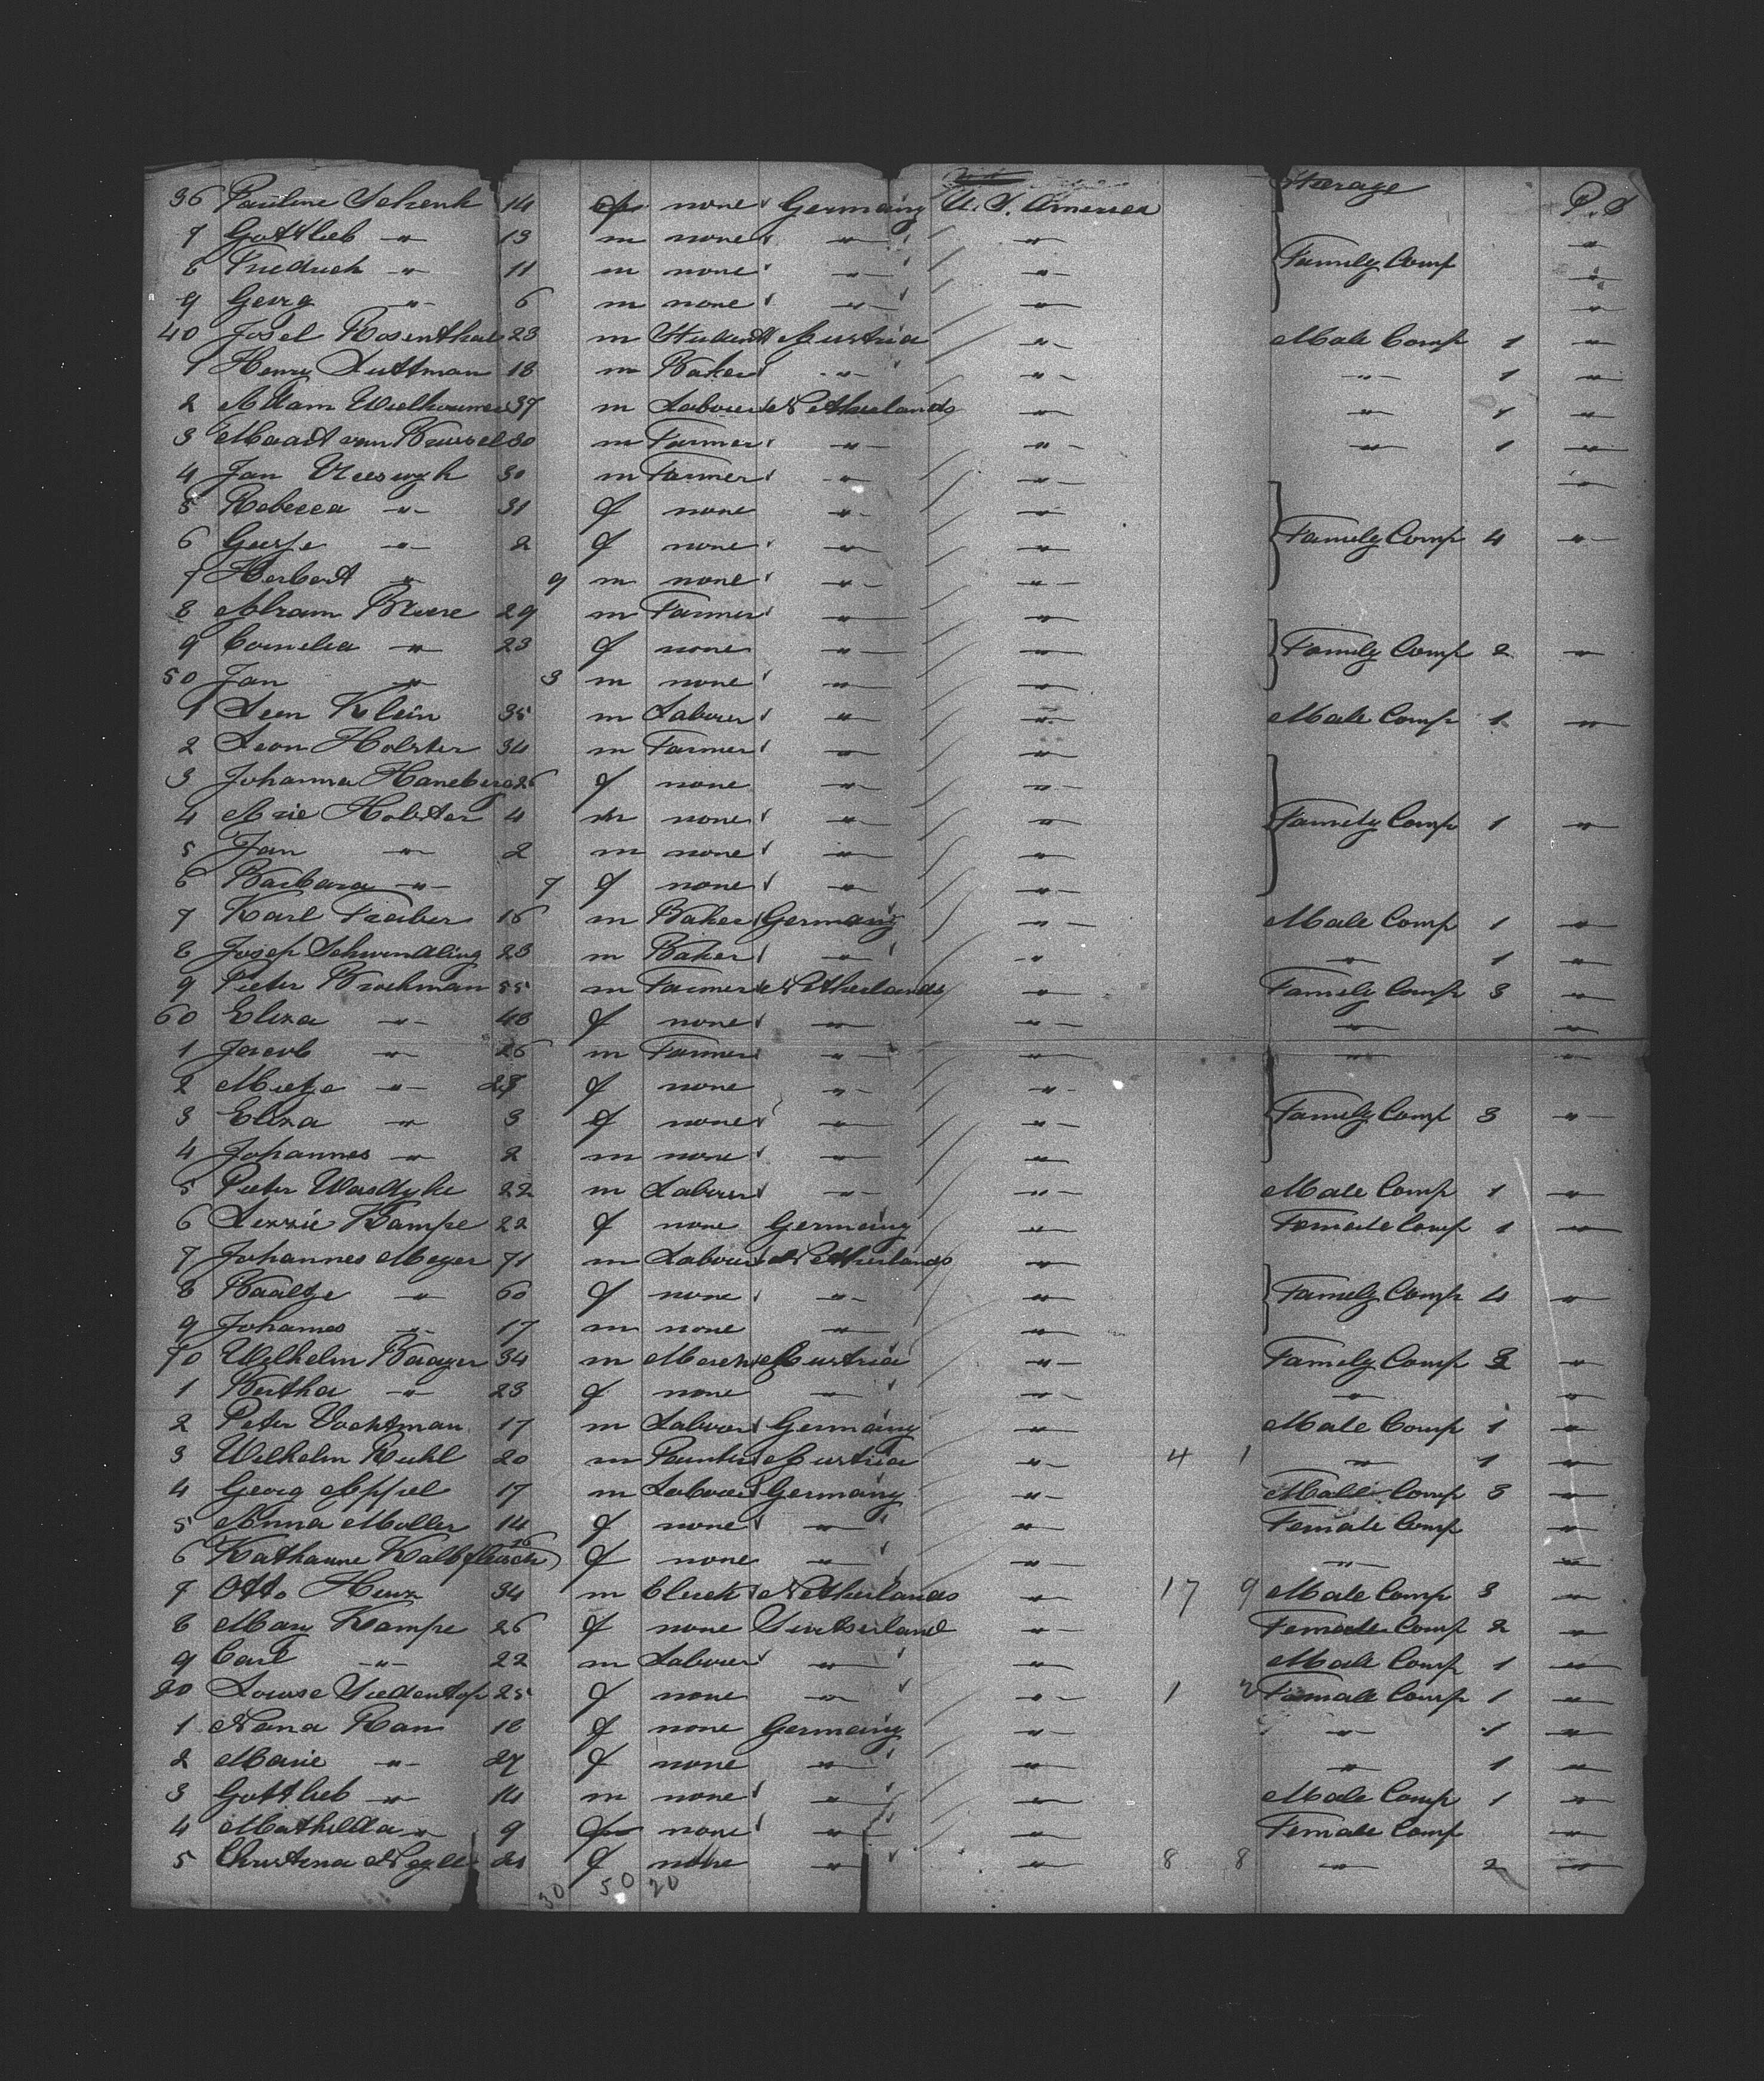 Steerage
36 Pauline Schenk 14 f none Germany U. S. America P. S
7 Gottlieb " 13 m none " "
8 Friedrich " 11 m none " " Family Comp "
9 Georg " 6 m none " " "
40 Josel Rosenthal 23 m Student Austria " Male Comp 1 "
1 Henry Luttman 18 m Baker " " " 1 "
2 Adam 37 m Labourer Netherlands " " 1 "
3 Maart van Brussel 30 m Farmer " " " 1 "
4 Jan 30 m Farmer " " "
5 Rebecca " 31 f none " "
6 Geesje " 2 f none " " Family Comp 4 "
7 Herbert " 9 m none " "
8 Abram 29 m Farmer " "
9 Cornelia " 23 f none " " Family Comp 2 "
50 Jan " 3 m none " "
1 Leen Klein 35 m Labourer " " Male Comp 1 "
2 Leon Holster 34 m Farmer " "
3 Johanna Haneberg 26 f none " "
4 Arie Holster 4 m none " " Family Comp 1 "
5 Jan " 2 m none " "
6 Barbara " 7 f none " "
7 Karl 16 m Baker Germany " Male Comp 1 "
8 Josep Schwindling 23 m Baker " " " 1 "
9 Pieter Brockman 55 m Farmer Netherlands " Family Comp 3 "
60 Eliza " 48 f none " " " "
1 Jacob " 26 m Farmer " " " "
2 Mietje " 23 f none " "
3 Eliza " 3 f none " " Family Comp 3 "
4 Johannes " 2 m none " "
5 Pieter Wasdyke 22 m Labourer " " Male Comp 1 "
6 Lizzie Kampe 22 f none Germany " Female Comp 1 "
7 Johannes Meyer 71 m Labourer Netherlands "
8 Baaltje " 60 f none " " Family Comp 4 "
9 Johannes " 17 m none " "
70 Wilhelm 34 m Austria " Family Comp 2 "
1 Bertha " 23 f none " " " "
2 Peter Vochtman 17 m Labourer Germany " Male Comp 1 "
3 Wilhelm Ruhl 20 m Painter Austria " 4 1 " 1 "
4 Georg Appel 17 m Labourer Germany " Male Comp 3 "
5 Anna Muller 14 f none " " Female Comp "
6 Katharine Kalbfleisch 16 f none " " " "
7 Otto 34 m Clerk Netherlands " 17 9 Male Comp 3 "
8 Mary Kampe 26 f none Switserland " Female Comp 2 "
9 Carl " 22 m Labourer " " Male Comp 1 "
80 Louise Siedentop 25 f none " " 1 2 Female Comp 1 "
1 Nana Rau 18 f none Germany " " 1 "
2 Marie " 27 f none " " " 1 "
3 Gottlieb " 14 m none " " Male Comp 1 "
4 Mathilda " 9 f none " " Female Comp "
5 Christina 21 f none " " 8 8 " 2 "
30 50 20